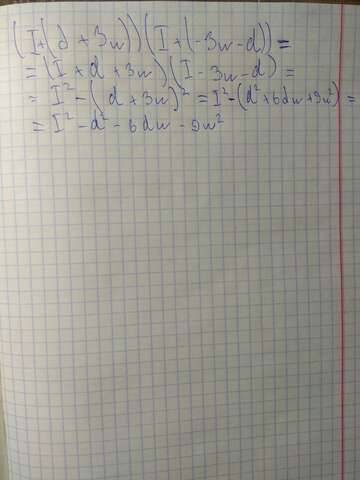 (I+(d+3w))(I+(-3w-d))=
=(I+d+3w)(I-3w-d)=
=I²-(d+3w)²=I²-(d²+6dw+9w²)=
=I²-d²-6dw-9w²